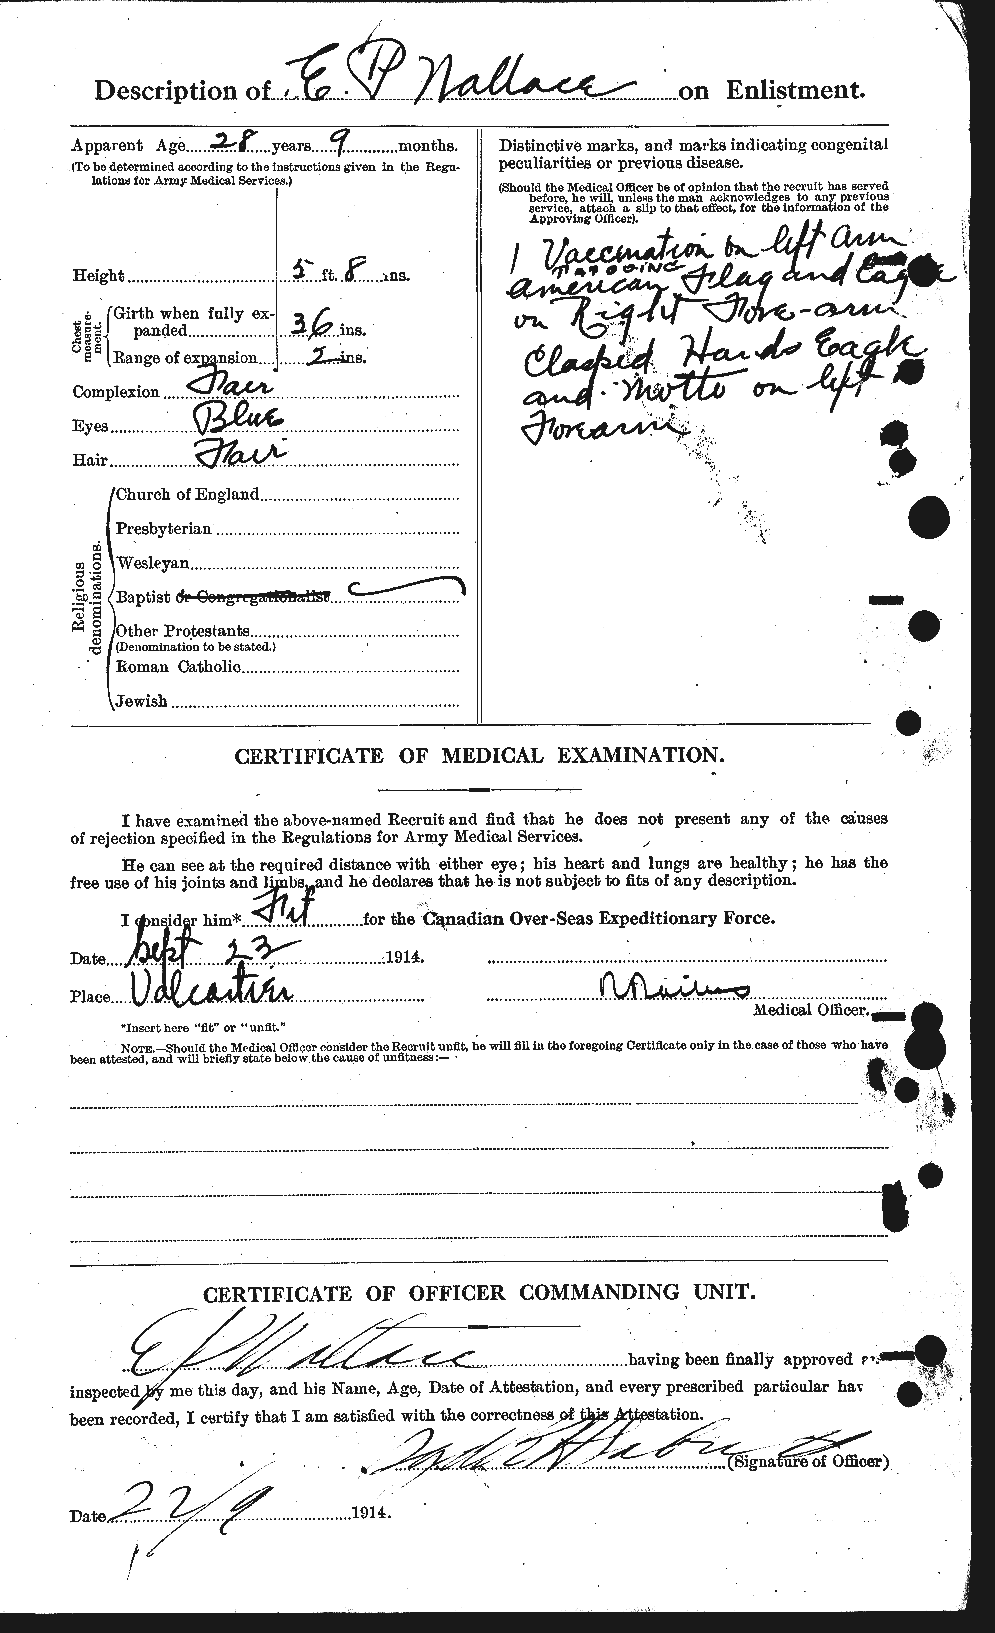 Description of E. P Wallace on Enlistment.
Apparent Age 28 years 9 months.
(To be determined according to the instructions given in the Regu-
lations for Army Medical Services.)
Height 5 ft. 8 ins.
Chest measure-ment.
Girth when fully ex-
panded 36 ins.
Range of expansion 2 ins.
Complexion Fair
Eyes Blue
Hair Fair
Religious denominations.
Church of England
Presbyterian
Wesleyan
Baptist or Congregationalist
Other Protestants
(Denomination to be stated.)
Roman Catholic
Jewish
Distinctive marks, and marks indicating congenital
peculiarities or previous disease.
(Should the Medical Officer be of opinion that the recruit has served
before, he will, unless the man acknowledges to any previous
service, attach a slip to that effect, for the information of the
Approving Officer).
1 Vaccination on left Arm
TATOOING
American Flag and Eagle
on Right Fore-arm
Clasped Hands Eagle
and Motto on left
Forearm
CERTIFICATE OF MEDICAL EXAMINATION.
I have examined the above-named Recruit and find that he does not present any of the causes
of rejection specified in the Regulations for Army Medical Services.
He can see at the required distance with either eye; his heart and lungs are healthy; he has the
free use of his joints and limbs, and he declares that he is not subject to fits of any description.
I consider him* Fit for the Canadian Over-Seas Expeditionary Force.
Date Sept 23 1914.
Place Valcartier
Medical Officer.
*Insert here "fit" or "unfit."
NOTE.—Should the Medical Officer consider the Recruit unfit, he will fill in the foregoing Certificate only in the case of those who have
been attested, and will briefly state below the cause of unfitness:—
CERTIFICATE OF OFFICER COMMANDING UNIT.
E P Wallace having been finally approved
inspected by me this day, and his Name, Age, Date of Attestation, and every prescribed particular hav
been recorded, I certify that I am satisfied with the correctness of this Attestation.
(Signature of Officer)
Date 22/9 1914.